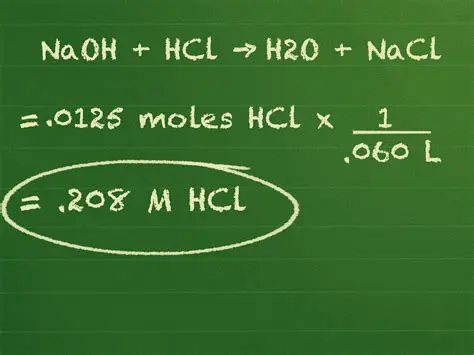 NaOH + HCl → H2O + NaCl
= .0125 moles HCl x 1/.060 L
= .208 M HCl